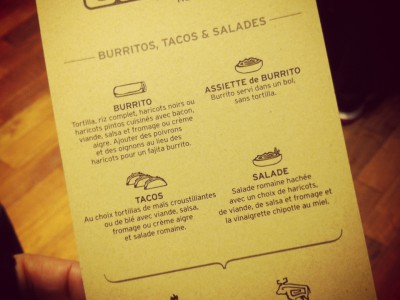 BURRITOS, TACOS & SALADES
BURRITO
Tortilla, riz complet, haricots noirs ou
haricots pintos cuisinés avec bacon,
viande, salsa et fromage ou crème
aigre. Ajouter des poivrons
et des oignons au lieu des
haricots pour un fajita burrito.
ASSIETTE de BURRITO
Burrito servi dans un bol,
sans tortilla.
TACOS
Au choix tortillas de maïs croustillantes
ou de blé avec viande, salsa,
fromage ou crème aigre
et salade romaine.
SALADE
Salade romaine hachée
avec un choix de haricots,
de viande, de salsa et fromage et
la vinaigrette chipotle au miel.